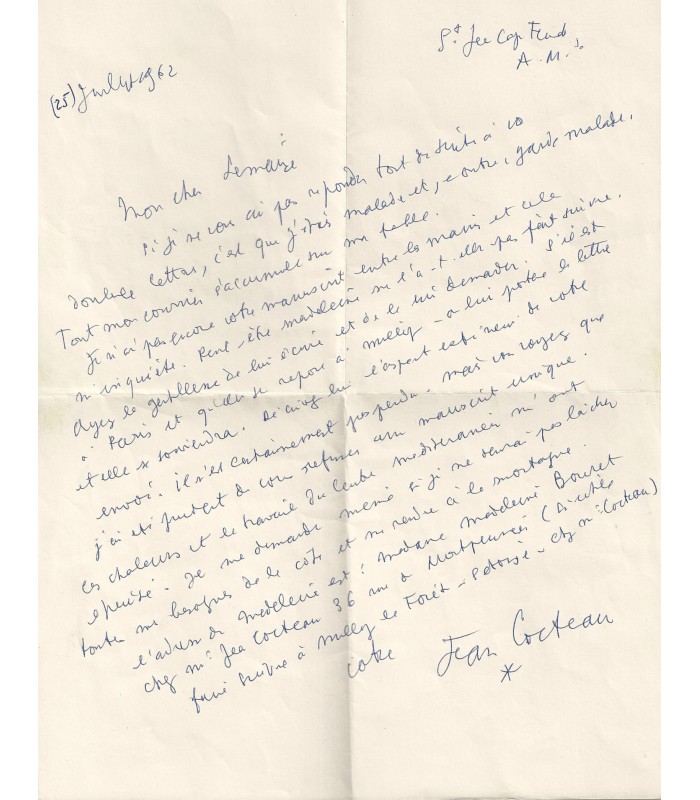 St Jean Cap Ferrat
A. M.
(25) Juillet 1962
Mon cher Lemarié
Si je ne vous ai pas répondu tout de suite à vo
double lettre, c'est que j'étais malade et, en outre, garde malade.
Tout mon courrier s'accumule sur ma table.
Je n'ai pas encore votre manuscrit entre les mains et cela
m'inquiète. Peut-être Madeleine ne l'a-t-elle pas fait suivre.
Ayez la gentillesse de lui écrire et de le lui demander. S'il est
à Paris et qu'elle se repose à Milly - on lui portera la lettre
et elle se souviendra. Décrivez lui l'aspect extérieur de votre
envoi. Il n'est certainement pas perdu. mais vous voyez que
j'ai été prudent de vous refuser un manuscrit unique.
Les chaleurs et le travail du Centre méditerranéen m'ont
épuisé. Je me demande même si je ne devrai pas lâcher
toutes mes besognes de la côte et me rendre à la montagne.
L'adresse de Madeleine est: Madame Madeleine Bouret
chez Mr Jean Cocteau 36 rue de Montpensier
faire suivre à Milly la Forêt - S et Oise - chez Mr Cocteau)
votre Jean Cocteau
*